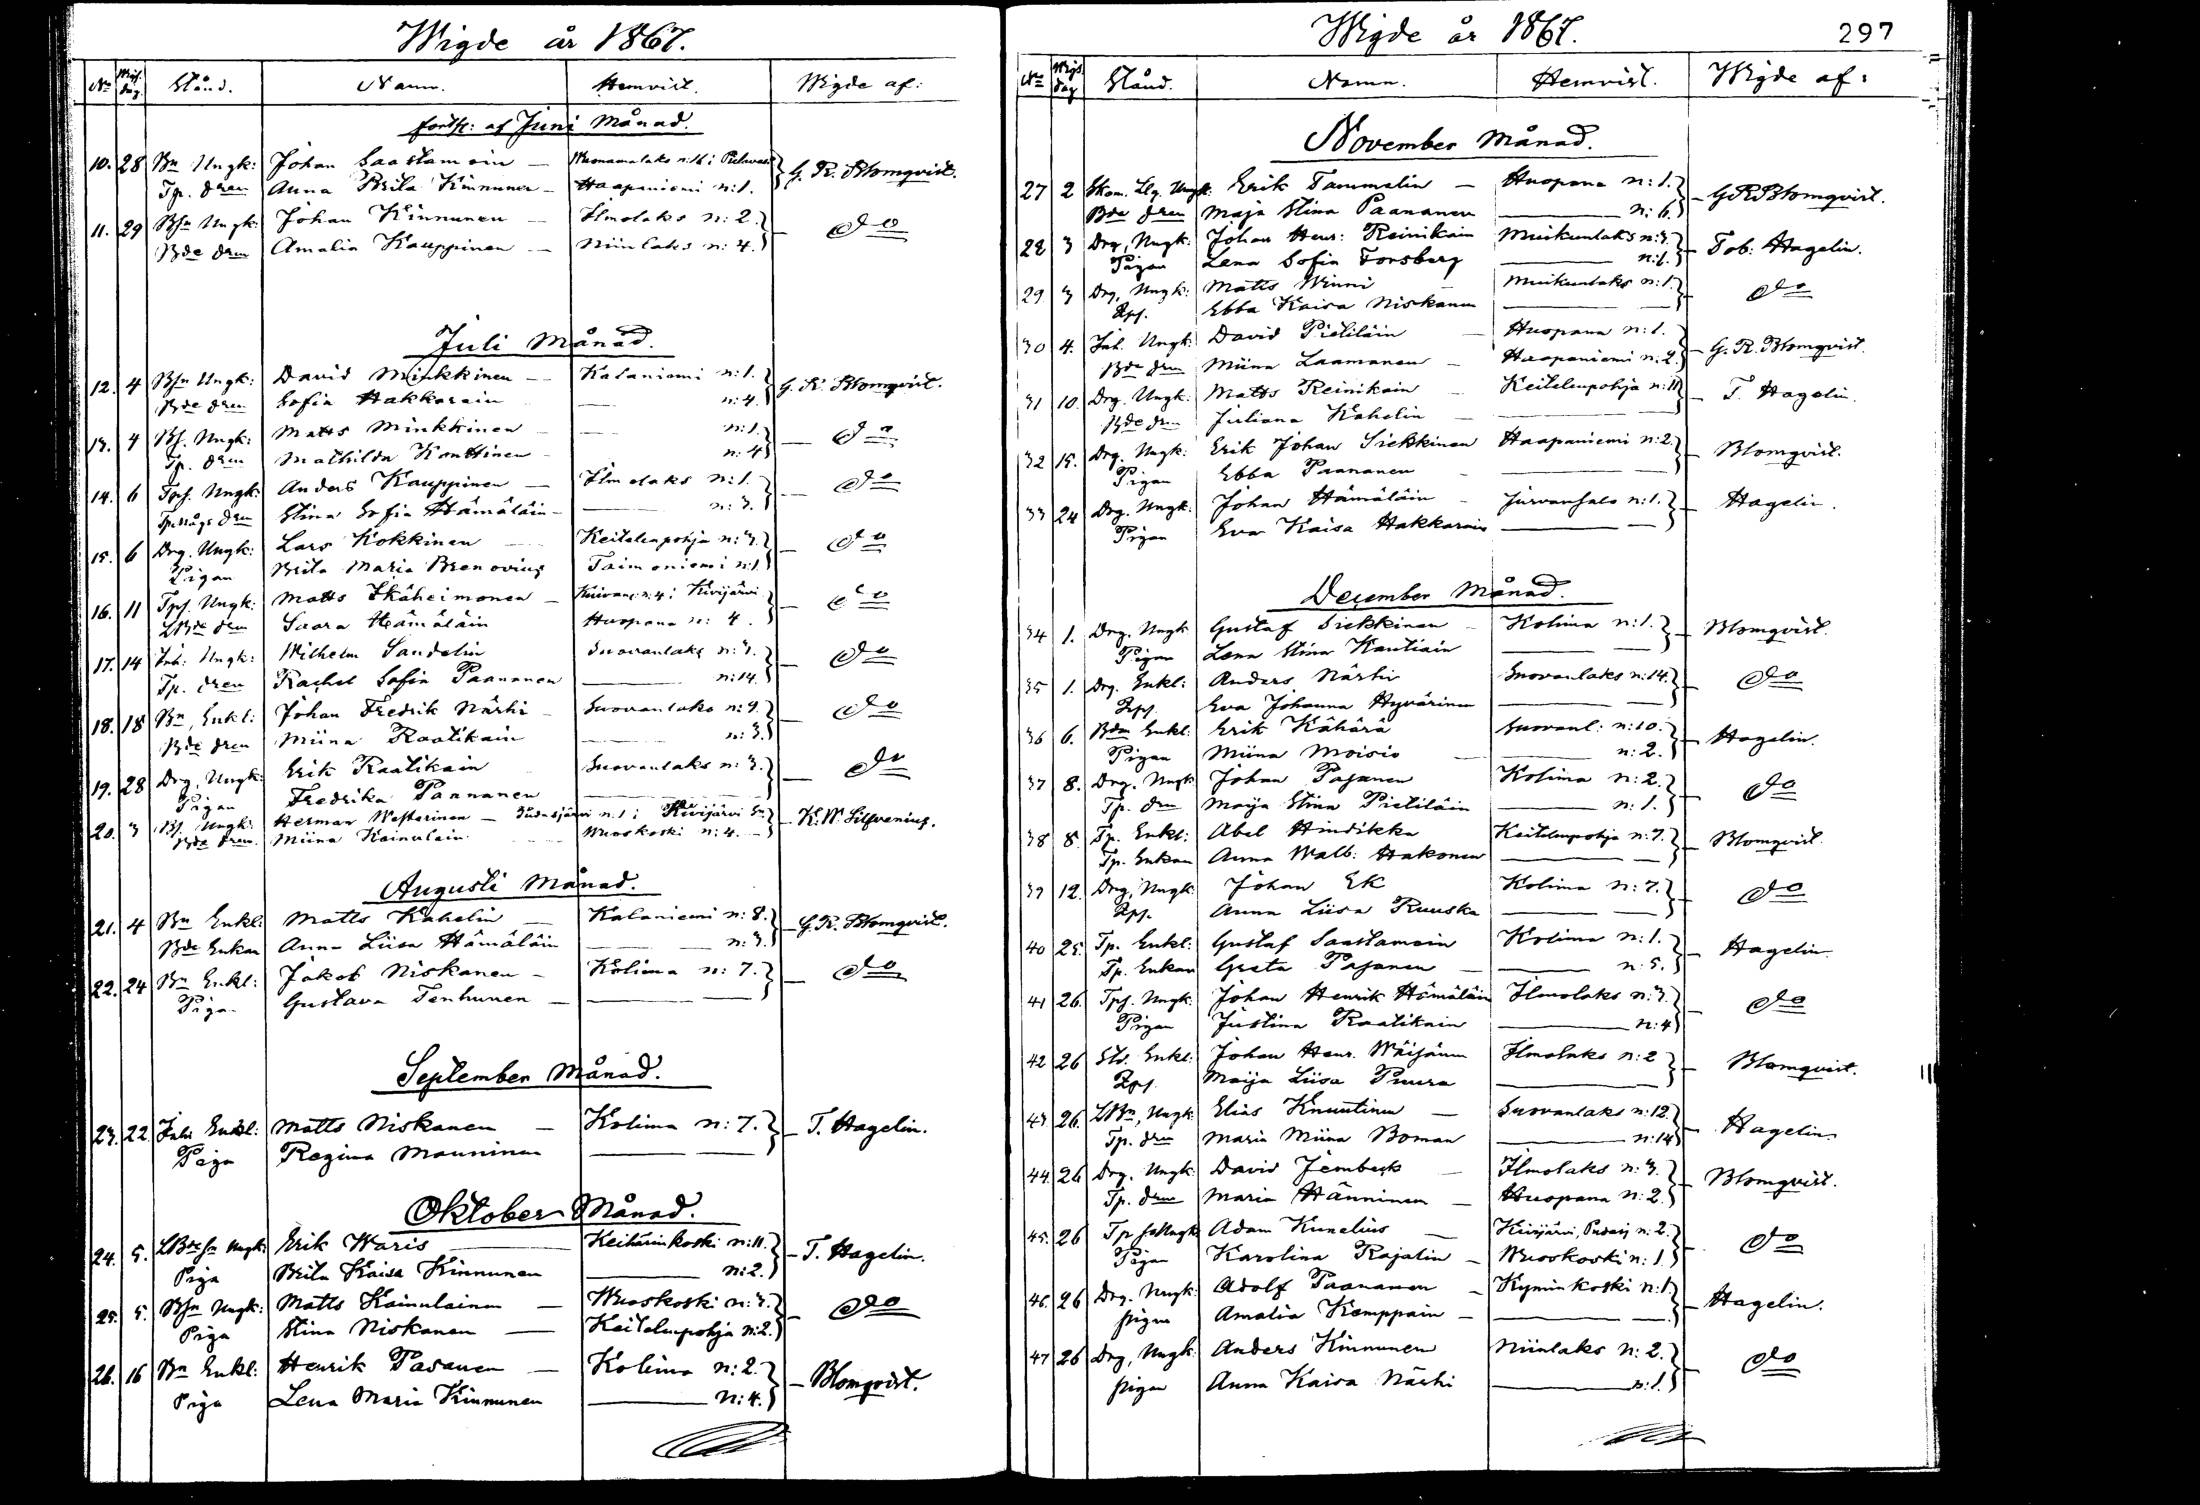 Wigde år 1867.
No Wigs. dag Stånd. Namn. Hemvist. Wigde af:
forts: af Juni Månad.
10. 28 Bn Ungk: Johan Saastamoin — Wuonamalaks n:16 i Pielaves
Tp. dren Anna Brita Kinnunen — Haapaniemi n:1. G. R. Blomqvist.
11. 29 Bsn Ungk: Johan Kinnunen — Ilmolaks n: 2.
Bde dren Amalia Kauppinen — Niinlaks n: 4. — do
Juli Månad.
12. 4 Bsn Ungk: David Minkkinen — Kalaniemi n:1.
Bde dren Sofia Hakkarain — n:4. G. R. Blomqvist.
13. 4 Bs. Ungk: Matts Minkkinen — n:1.
Tp. dren Mathilda Konttinen — n:4 — do
14. 6 Tps. Ungk: Anders Kauppinen — Ilmolaks n:1.
Tp. mågs dren Stina Sofia Hämäläin — n:3. — do
15. 6 Drg. Ungk: Lars Kokkinen — Keitelenpohja n:3.
Pigan Brita Maria Brenovius Taimoniemi n:1. — do
16. 11 Tps. Ungk: Matts Ikäheimonen — n:4 i Kivijärvi
LBde dren Saara Hämäläin Huopana n: 4. — do
17. 14 Inh: Ungk: Wilhelm Sandelin Suovanlaks n:3.
Tp. dren Rachel Sofia Paananen — n:14. — do
18. 18 Bn, Enkl: Johan Fredrik Närhi — Suovanlaks n:9.
Bde dren Miina Raatikain — n:3. — do
19. 28 Drg, Ungk: Erik Raatikain Suovanlaks n:3.
Pigan Fredrika Paananen — do
20. 3 Bs. Ungk: Herman Westerinen — n.1 i Kivijärvi Sn
Bde dren Miina Kainulain Wuoskoski n:4. — K. W. Silfvenius.
Augusti Månad.
21. 4 Bn Enkl: Matts Kahelin — Kalaniemi n:8.
Bde Enkan Anna Liisa Hämäläin — n:3. G. R. Blomqvist.
22. 24 Bn Enkl: Jakob Niskanen — Kolima n:7.
Piga Gustava Tenhunen — do
September Månad.
23. 22. Enkl: Matts Niskanen — Kolima n: 7.
Piga Regina Mauninen — T. Hagelin.
Oktober Månad.
24. 5. LBdesn Ungk: Erik Waris — Keihärinkoski n:11.
Piga Brita Kaisa Kinnunen — n:2. — T. Hagelin.
25. 5. Bsn Ungk: Matts Kainulainen — Wuoskoski n:3.
Piga Stina Niskanen — Keitelenpohja n:2. — do
26. 16 Bn Enkl: Henrik Pasanen — Kolima n:2.
Piga Lena Maria Kinnunen — n:4. — Blomqvist.
Wigde år 1867. 297
No Wigs dag Stånd. Namn. Hemvist. Wigde af:
November Månad.
27 2 Ungk: Erik Tammelin — Huopana n:1.
Bde dren Maja Stina Paananen — n: 6. — G R Blomqvist.
28 3 Drg, Ungk: Johan Henr: Reinikain Muikunlaks n:3.
Pigan Lena Sofia Forsberg — n:1. — Tob: Hagelin.
29 3 Drg, Ungk: Matts Winni — Muikunlaks n:1.
Ebba Kaisa Niskanen — do
30 4. Inh. Ungk: David Pietiläin — Huopana n:1.
Bde dren Miina Laamanen — Haapaniemi n:2. — G. R. Blomqvist.
31 10. Drg. Ungk: Matts Reinikain Keitelenpohja n:11
Bde dren Juliana Kahelin — T. Hagelin.
32 15. Drg. Ungk: Erik Johan Siekkinen Haapaniemi n:2.
Pigan Ebba Paananen — Blomqvist.
33 24 Drg. Ungk: Johan Hämäläin — Jurvansalo n:1.
Pigan Eva Kaisa Hakkarain — Hagelin.
December Månad.
34 1. Drg. Ungk Gustaf Siekkinen — Kolima n:1.
Pigan Lena Stina Kautiain — Blomqvist.
35 1. Drg. Enkl: Anders Närhi Suovanlaks n:14.
Eva Johanna Hyvärinen — do
36 6. Bdm Enkl: Erik Kähärä Suovanl: n:10.
Pigan Miina Moisio — n:2. — Hagelin.
37 8. Drg. Ungk Johan Pasanen Kolima n:2.
Tp. dren Maija Stina Pietiläin — n:1. — do
38 8. Tp. Enkl: Abel Hindikka Keitelenpohja n:7.
Tp. Enkan Anna Walb: Hakonen — Blomqvist.
39 12. Drg, Ungk: Johan Ek Kolima n:7.
Anna Liisa Ruuska — do
40 25. Tp. Enkl: Gustaf Saastamoin Kolima n:1.
Tp. Enkan Greta Pasanen — n:5. — Hagelin
41 26. Tps. Ungk: Johan Henrik Hämäläin Ilmolaks n:3.
Pigan Justina Raatikain — n:4 — do
42 26 Std. Enkl: Johan Henr. Wäisänen Ilmolaks n:2
Maija Liisa Puura — Blomqvist.
43 26. LBn, Ungk: Elias Knuutinen — Suovanlaks n:12.
Tp. dren Maria Miina Boman — n:14 — Hagelin.
44. 26 Drg. Ungk: David Jernbeck — Ilmolaks n:3.
Tp. dren Maria Hänninen — Huopana n:2. — Blomqvist.
45. 26 Tp Ungk Adam Kunelius — Kivijärvi, n:2.
Pigan Karolina Rajalin — Wuoskoski n:1. — do
46. 26 Drg. Ungk: Adolf Paananen — Kyminkoski n:1.
pigan Amalia Kemppain — Hagelin.
47 26 Drg, Ungk: Anders Kinnunen Niinlaks n: 2.
pigan Anna Kaisa Närhi — n:1. — do